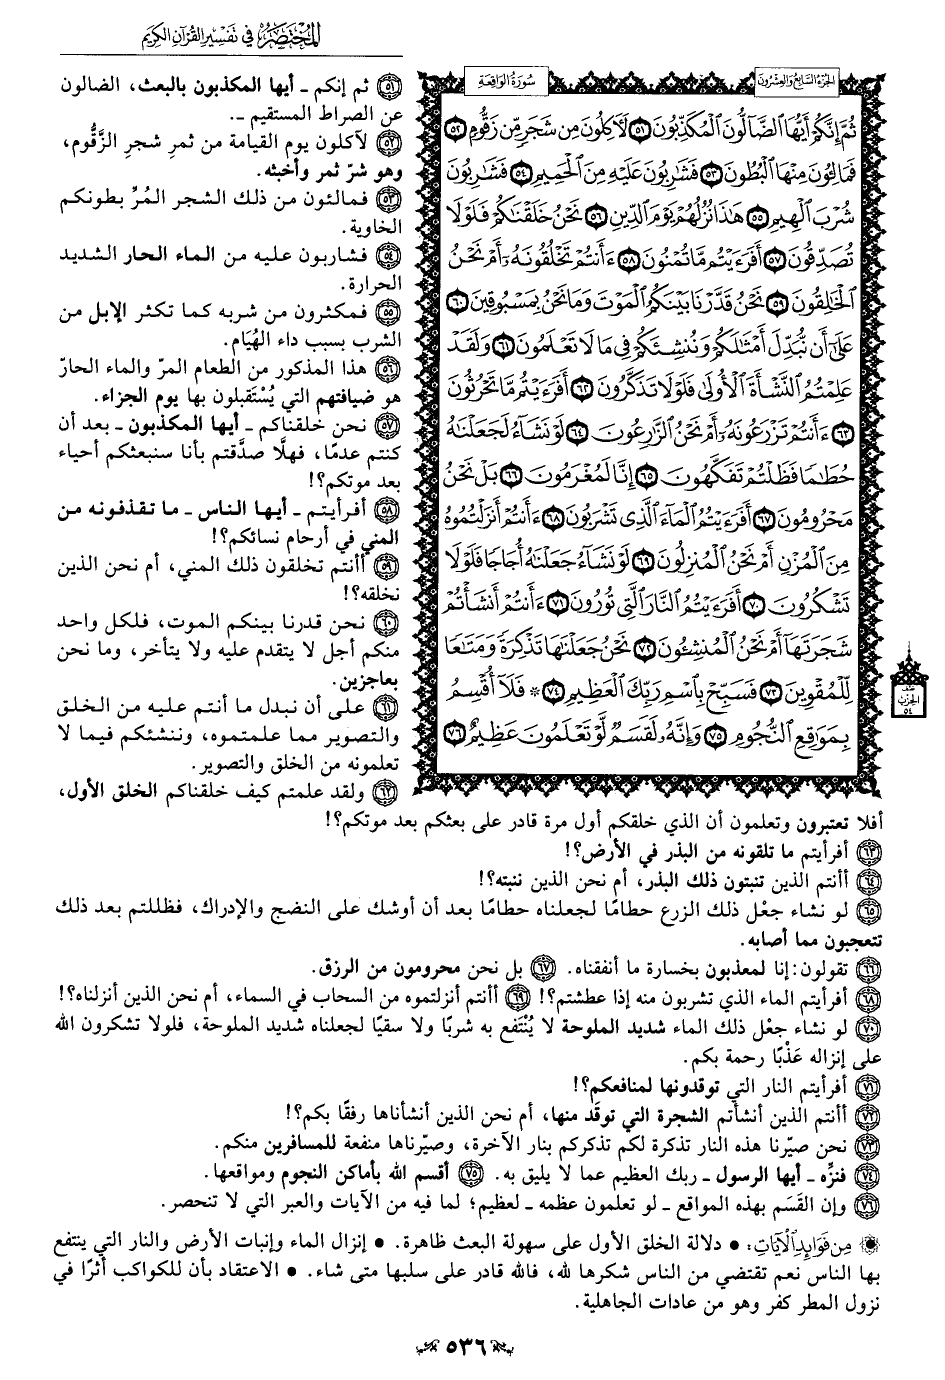 المختصر في تفسير القرآن الكريم
الجزء السابع والعشرون
سورة الواقعة
ثُمَّ إِنَّكُمْ أَيُّهَا ٱلضَّآلُّونَ ٱلْمُكَذِّبُونَ ٥١ لَأٓكِلُونَ مِن شَجَرٍ مِّن زَقُّومٍ ٥٢
فَمَالِـُٔونَ مِنْهَا ٱلْبُطُونَ ٥٣ فَشَٰرِبُونَ عَلَيْهِ مِنَ ٱلْحَمِيمِ ٥٤ فَشَٰرِبُونَ
شُرْبَ ٱلْهِيمِ ٥٥ هَٰذَا نُزُلُهُمْ يَوْمَ ٱلدِّينِ ٥٦ نَحْنُ خَلَقْنَٰكُمْ فَلَوْلَا
تُصَدِّقُونَ ٥٧ أَفَرَءَيْتُم مَّا تُمْنُونَ ٥٨ ءَأَنتُمْ تَخْلُقُونَهُۥٓ أَمْ نَحْنُ
ٱلْخَٰلِقُونَ ٥٩ نَحْنُ قَدَّرْنَا بَيْنَكُمُ ٱلْمَوْتَ وَمَا نَحْنُ بِمَسْبُوقِينَ ٦٠
عَلَىٰٓ أَن نُّبَدِّلَ أَمْثَٰلَكُمْ وَنُنشِئَكُمْ فِي مَا لَا تَعْلَمُونَ ٦١ وَلَقَدْ
عَلِمْتُمُ ٱلنَّشْأَةَ ٱلْأُولَىٰ فَلَوْلَا تَذَكَّرُونَ ٦٢ أَفَرَءَيْتُم مَّا تَحْرُثُونَ
٦٣ ءَأَنتُمْ تَزْرَعُونَهُۥٓ أَمْ نَحْنُ ٱلزَّٰرِعُونَ ٦٤ لَوْ نَشَآءُ لَجَعَلْنَٰهُ
حُطَٰمًا فَظَلْتُمْ تَفَكَّهُونَ ٦٥ إِنَّا لَمُغْرَمُونَ ٦٦ بَلْ نَحْنُ
مَحْرُومُونَ ٦٧ أَفَرَءَيْتُمُ ٱلْمَآءَ ٱلَّذِي تَشْرَبُونَ ٦٨ ءَأَنتُمْ أَنزَلْتُمُوهُ
مِنَ ٱلْمُزْنِ أَمْ نَحْنُ ٱلْمُنزِلُونَ ٦٩ لَوْ نَشَآءُ جَعَلْنَٰهُ أُجَاجًا فَلَوْلَا
تَشْكُرُونَ ٧٠ أَفَرَءَيْتُمُ ٱلنَّارَ ٱلَّتِي تُورُونَ ٧١ ءَأَنتُمْ أَنشَأْتُمْ
شَجَرَتَهَآ أَمْ نَحْنُ ٱلْمُنشِـُٔونَ ٧٢ نَحْنُ جَعَلْنَٰهَا تَذْكِرَةً وَمَتَٰعًا
لِّلْمُقْوِينَ ٧٣ فَسَبِّحْ بِٱسْمِ رَبِّكَ ٱلْعَظِيمِ ٧٤ * فَلَآ أُقْسِمُ
بِمَوَٰقِعِ ٱلنُّجُومِ ٧٥ وَإِنَّهُۥ لَقَسَمٌ لَّوْ تَعْلَمُونَ عَظِيمٌ ٧٦
نصف
الحزب
٥٤
٥١ ثم إنكم ـ أيها المكذبون بالبعث، الضالون
عن الصراط المستقيم ـ.
٥٢ لآكلون يوم القيامة من ثمرِ شجرِ الزَّقُّوم،
وهو شرّ ثمر وأخبثه.
٥٣ فمالئون من ذلك الشجر المُرِّ بطونكم
الخاوية.
٥٤ فشاربون عليه من الماء الحار الشديد
الحرارة.
٥٥ فمكثرون من شربه كما تكثر الإبل من
الشرب بسبب داء الهُيَام.
٥٦ هذا المذكور من الطعام المرّ والماء الحارّ
هو ضيافتهم التي يُسْتَقبلون بها يوم الجزاء.
٥٧ نحن خلقناكم ـ أيها المكذبون ـ بعد أن
كنتم عدمًا، فهلَّا صدَّقتم بأنا سنبعثكم أحياء
بعد موتكم؟!
٥٨ أفرأيتم ـ أيها الناس ـ ما تقذفونه من
المني في أرحام نسائكم؟!
٥٩ أأنتم تخلقون ذلك المني، أم نحن الذين
نخلقه؟!
٦٠ نحن قدرنا بينكم الموت، فلكل واحد
منكم أجل لا يتقدم عليه ولا يتأخر، وما نحن
بعاجزين.
٦١ على أن نبدل ما أنتم عليه من الخلق
والتصوير مما علمتموه، وننشئكم فيما لا
تعلمونه من الخلق والتصوير.
٦٢ ولقد علمتم كيف خلقناكم الخلق الأول،
أفلا تعتبرون وتعلمون أن الذي خلقكم أول مرة قادر على بعثكم بعد موتكم؟!
٦٣ أفرأيتم ما تلقونه من البذر في الأرض؟!
٦٤ أأنتم الذين تنبتون ذلك البذر، أم نحن الذين ننبته؟!
٦٥ لو نشاء جعْل ذلك الزرع حطامًا لجعلناه حطامًا بعد أن أوشك على النضج والإدراك، فظللتم بعد ذلك
تتعجبون مما أصابه.
٦٦ تقولون: إنا لمعذبون بخسارة ما أنفقناه. ٦٧ بل نحن محرومون من الرزق.
٦٨ أفرأيتم الماء الذي تشربون منه إذا عطشتم؟! ٦٩ أأنتم أنزلتموه من السحاب في السماء، أم نحن الذين أنزلناه؟!
٧٠ لو نشاء جعْل ذلك الماء شديد الملوحة لا يُنْتَفع به شربًا ولا سقيًا لجعلناه شديد الملوحة، فلولا تشكرون الله
على إنزاله عَذْبًا رحمة بكم.
٧١ أفرأيتم النار التي توقدونها لمنافعكم؟!
٧٢ أأنتم الذين أنشأتم الشجرة التي توقَد منها، أم نحن الذين أنشأناها رفقًا بكم؟!
٧٣ نحن صيّرنا هذه النار تذكرة لكم تذكركم بنار الآخرة، وصيّرناها منفعة للمسافرين منكم.
٧٤ فنزِّه ـ أيها الرسول ـ ربك العظيم عما لا يليق به. ٧٥ أقسم الله بأماكن النجوم ومواقعها.
٧٦ وإن القَسَم بهذه المواقع ـ لو تعلمون عظمه ـ لعظيم؛ لما فيه من الآيات والعبر التي لا تنحصر.
من فوائد الآيات: • دلالة الخلق الأول على سهولة البعث ظاهرة. • إنزال الماء وإنبات الأرض والنار التي ينتفع
بها الناس نعم تقتضي من الناس شكرها لله، فالله قادر على سلبها متى شاء. • الاعتقاد بأن للكواكب أثرًا في
نزول المطر كفر وهو من عادات الجاهلية.
٥٣٦